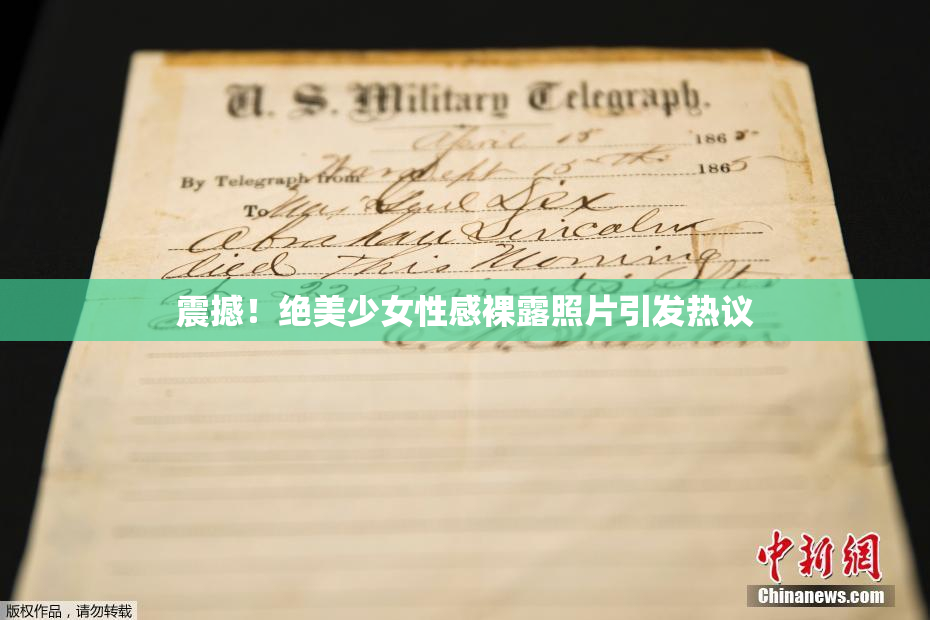 U. S. Military Telegraph.
April 15 1865
By Telegraph from War Dept 15th 1865
To Maj Genl Dix
Abraham Lincoln
died This Morning
at 22 minutes after
震撼！绝美少女性感裸露照片引发热议
E. M. Stanton
中新网
Chinanews.com
版权作品，请勿转载